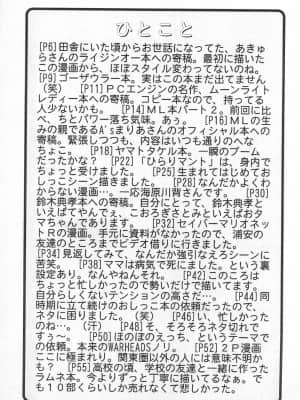 ひとこと
[P6]田舎にいた頃からお世話になってた、あきゅ
らさんのライジンオー本への寄稿。最初に描いた
この漫画から、ほぼスタイル変わってないのね。
[P9]ゴーザウラー本。実はこの本まだ出てません
(笑) [P11]PCエンジンの名作、ムーンライト
レディー本への寄稿。コピー本なので、持ってる
人少ないかも。[P14]ML本パート2。前回に比
べ、ちとパワー落ち気味。あぅ。[P16]MLの生
みの親であるA'sまりあさんのオフィシャル本への
寄稿。緊張しつつも、内容はいつも通りのへな
ちょこ。[P18]ヤマトタケル本。一瞬のブーム
だったかな? [P22]「ひらりマント」は、身内で
ちょっと受けました。[P25]生まれてはじめてお
しっこシーン描きました。[P28]なんだかよくわ
からない漫画…。一応海原川背さんです。[P30]
鈴木典孝本への寄稿。自分にとって、鈴木典孝と
いえばてやんでぇ、こおろぎさとみといえばおタ
マちゃんであります。[P32]セイバーマリオネッ
トRの漫画。手元に資料がなかったので、浦安の
友達のところまでビデオ借りに行きました。
[P34]見返してみて、なんだか強引なえろシーンに
苦笑。[P38]ママは病気で死にました。という裏
設定あり。なんやねんそれ。[P42]このころは
ちょっと忙しかったので勢いだけで描いてます。
自分らしくないテンションの高さだ…。[P44]同
時期に立て続けのおしっこ本の依頼だったので、
ネタに困りました。[P46]い、忙しかった
のね…。(汗) [P48]そ、そろそろネタ切れで
すぅ〜。[P50]ほのぼのえっち、というテーマで
の依頼。本来のWARHEADSノリ。[P52]2P漫画
ここに極まれり。関東圏以外の人には意味不明か
も? [P55]高校の頃、学校の友達と一緒に作った
ラムネ本。今よりずっと丁寧に描いてるなぁ。で
も10部くらいしか売れなくて悲しかった。